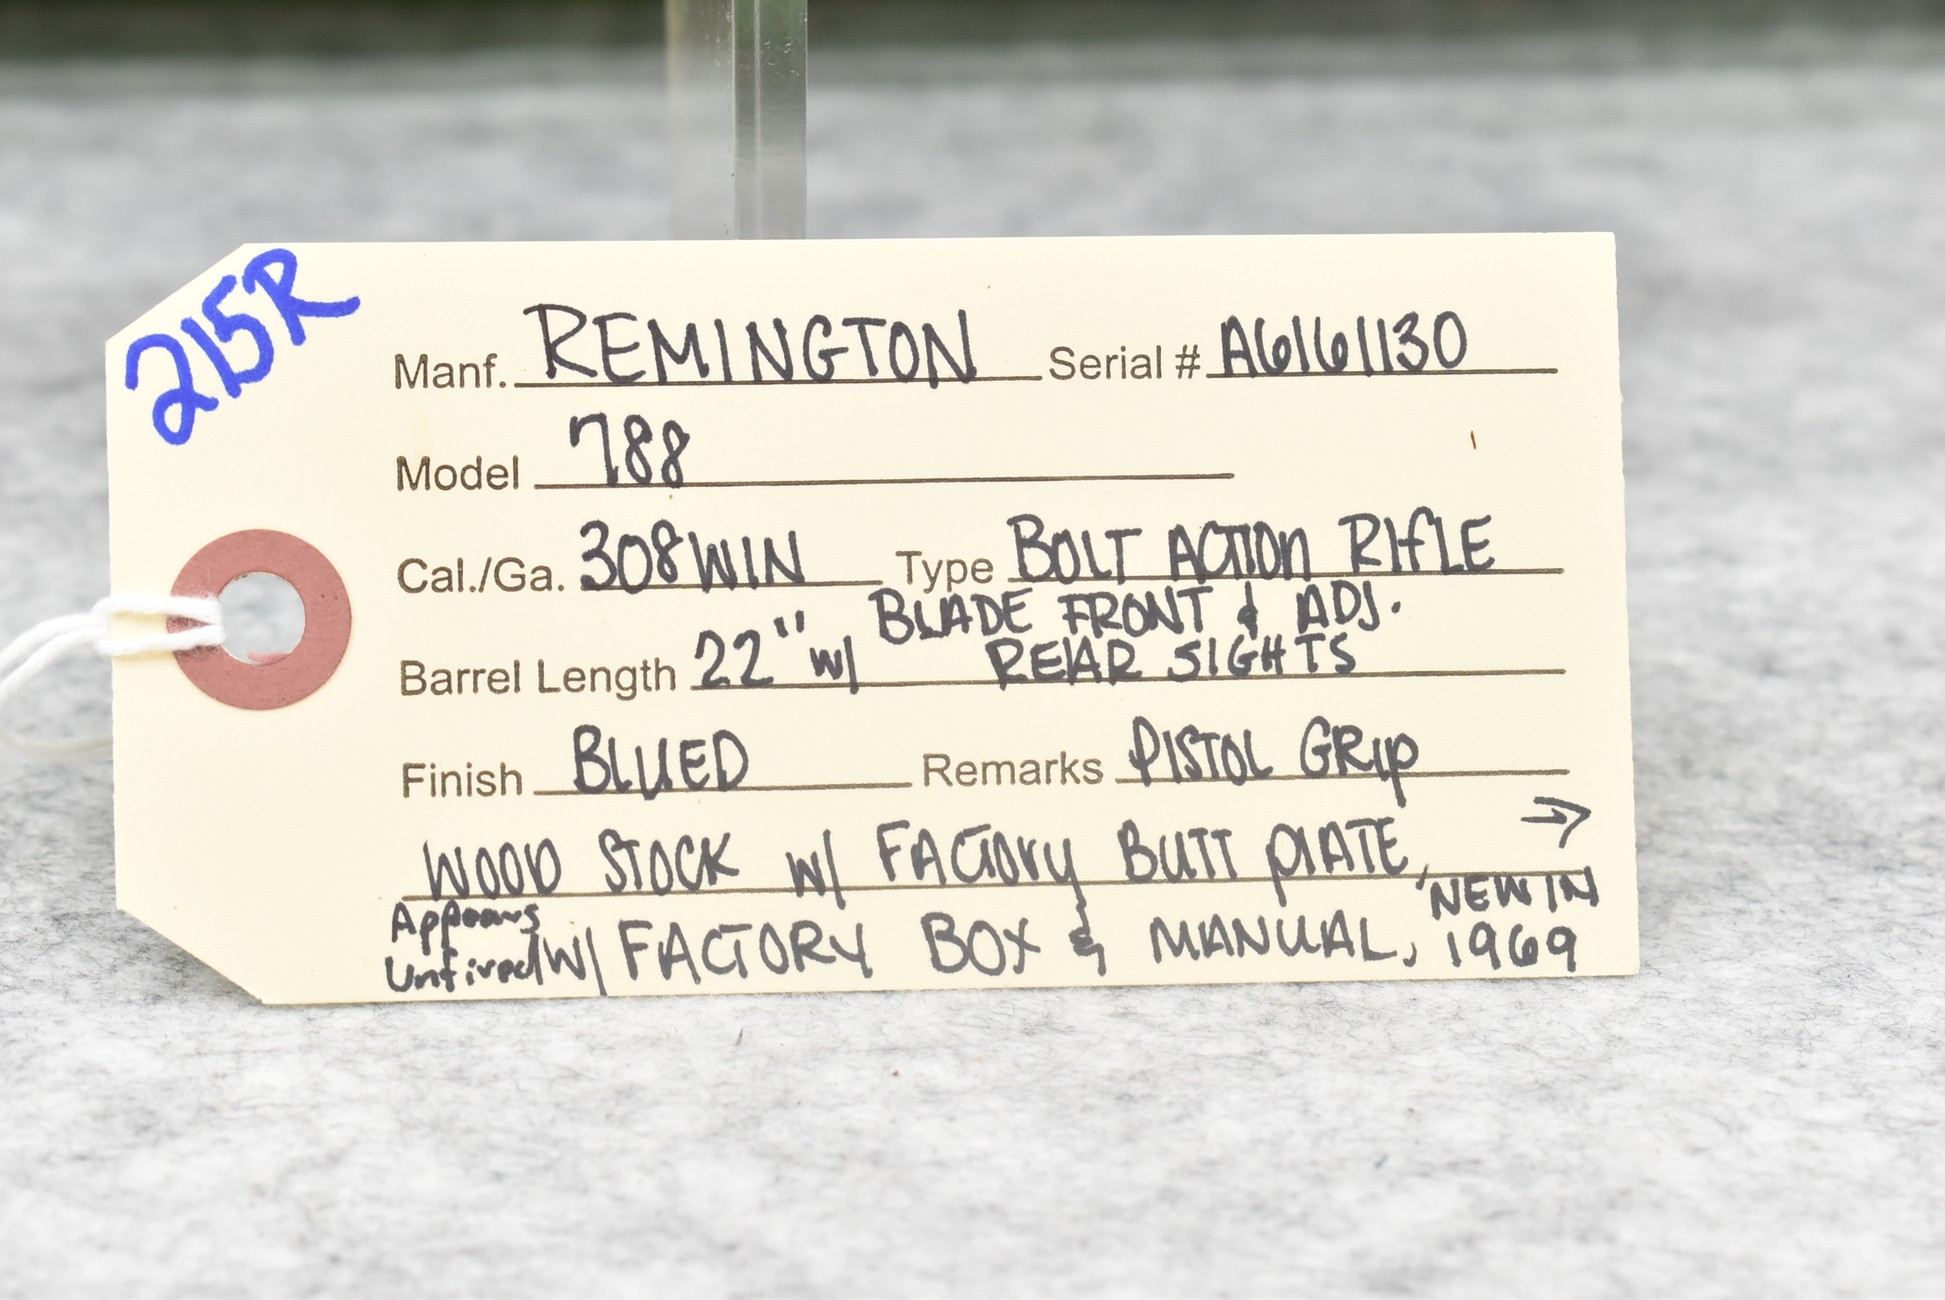 215R
Manf. REMINGTON Serial # A6161130
Model 788
Cal./Ga. 308 WIN Type BOLT ACTION RIFLE
BLADE FRONT & ADJ.
Barrel Length 22" w/ REAR SIGHTS
Finish BLUED Remarks PISTOL GRIP
→
WOOD STOCK w/ FACTORY BUTT PLATE,
Appears NEW IN
Unfired W/ FACTORY BOX & MANUAL, 1969